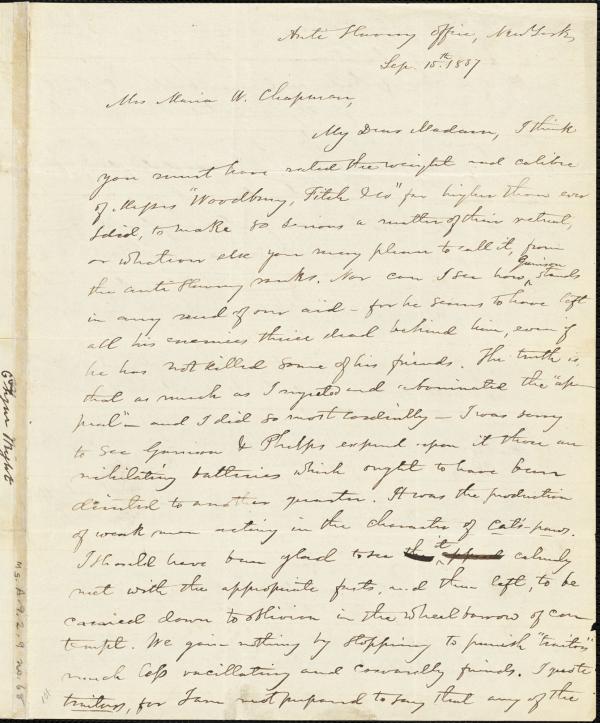 Anti Slavery Office, New York,
Sep. 15th. 1837
Mrs Maria W. Chapman,
My Dear Madam, I think
you must have rated the weight and calibre
of Messrs "Woodbury, Fitch & Co" far higher than ever
I did, to make so serious a matter of their retreat,
or whatever else you may please to call it, from
the anti slavery ranks. Nor can I see how Garrison stands
in any need of our aid – for he seems to have left
all his enemies thrice dead behind him, even if
he has not killed some of his friends. The truth is,
that as much as I rejected and abominated the "ap
peal" – and I did so most cordially – I was sorry
to see Garrison & Phelps expend upon it those an
nihilating batteries which ought to have been
directed to another quarter. It was the production
of weak men acting in the character of cats-paws.
I should have been glad to see it calmly
met with the appropriate facts, and then left, to be
carried down to oblivion in the wheelbarrow of con
tempt. We gain nothing by stopping to punish "traitors"
much less vacillating and cowardly friends. I quote
traitors, for I am not prepared to say that any of the
Elizur Wright
Ms. A. 9. 2. 9 no. 68